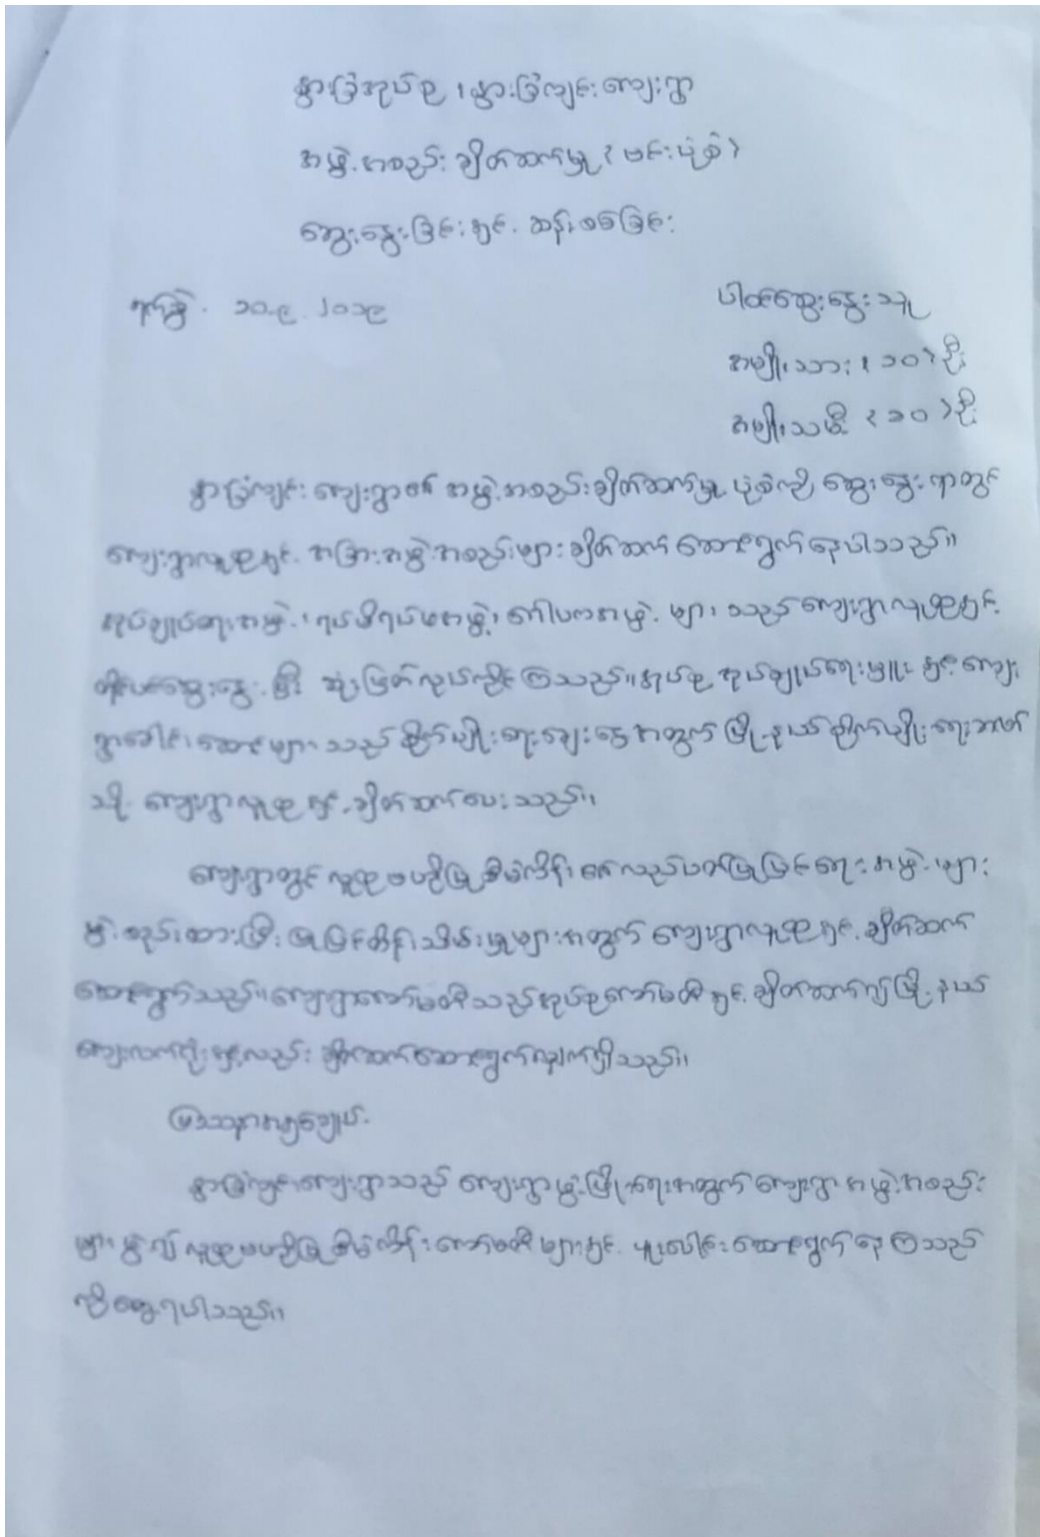 နွားခြံအုပ်စု ၊ နွားခြံကျင်းကျေးရွာ
အဖွဲ့အစည်း ချိတ်ဆက်မှု ( ဗင်းပုံစံ )
ဆွေးနွေးခြင်းနှင့် ဆန်းစစ်ခြင်း
ရက်စွဲ - ၁၁.၉.၂၀၁၉
ပါဝင်ဆွေးနွေးသူ
အမျိုးသား ( ၁၀ ) ဦး
အမျိုးသမီး ( ၁၀ ) ဦး
နွားခြံကျင်းကျေးရွာ၏ အဖွဲ့အစည်းချိတ်ဆက်မှု ပုံစံကို ဆွေးနွေးရာတွင်
ကျေးရွာလူထုနှင့် အခြားအဖွဲ့အစည်းများ ချိတ်ဆက် ဆောင်ရွက်နေပါသည်။
အုပ်ချုပ်ရေးအဖွဲ့၊ ရပ်မိရပ်ဖအဖွဲ့၊ ဂေါပကအဖွဲ့ များ သည်ကျေးရွာလူထုနှင့်
တိုင်ပင်ဆွေးနွေးပြီး ဆုံးဖြတ်လုပ်ကိုင်ကြသည်။အုပ်စု အုပ်ချုပ်ရေးမှူး နှင့်ကျေး
ရွာခေါင်းဆောင်များ သည်စိုက်ပျိုးရေးချေးငွေအတွက် မြို့နယ်စိုက်ပျိုးရေးဘဏ်
သို့ ကျေးရွာလူထုနှင့် ချိတ်ဆက်ပေးသည်။
ကျေးရွာတွင် လူထုဗဟိုပြုစီမံကိန်း လည်ပတ်ပြုပြင်ရေး အဖွဲ့များ
ဖွဲ့စည်းထားပြီး ပြုပြင်ထိန်းသိမ်းမှုများအတွက် ကျေးရွာလူထုနှင့် ချိတ်ဆက်
ဆောင်ရွက်သည်။ကျေးရွာကော်မတီသည်အုပ်စုကော်မတီနှင့် ချိတ်ဆက်၍မြို့နယ်
ကျေးလက်ဦးစီးနှင့်လည်း ချိတ်ဆက်ဆောင်ရွက်လျက်ရှိသည်။
ပြဿနာအကျဉ်းချုပ်
နွားခြံကျင်းကျေးရွာသည် ကျေးရွာဖွံ့ဖြိုးရေးအတွက် ကျေးရွာ အဖွဲ့အစည်း
များ ဖွဲ့၍ လူထုဗဟိုပြုစီမံကိန်း ကော်မတီများနှင့် ပူးပေါင်းဆောင်ရွက်နေကြသည်
ကို တွေ့ရပါသည်။